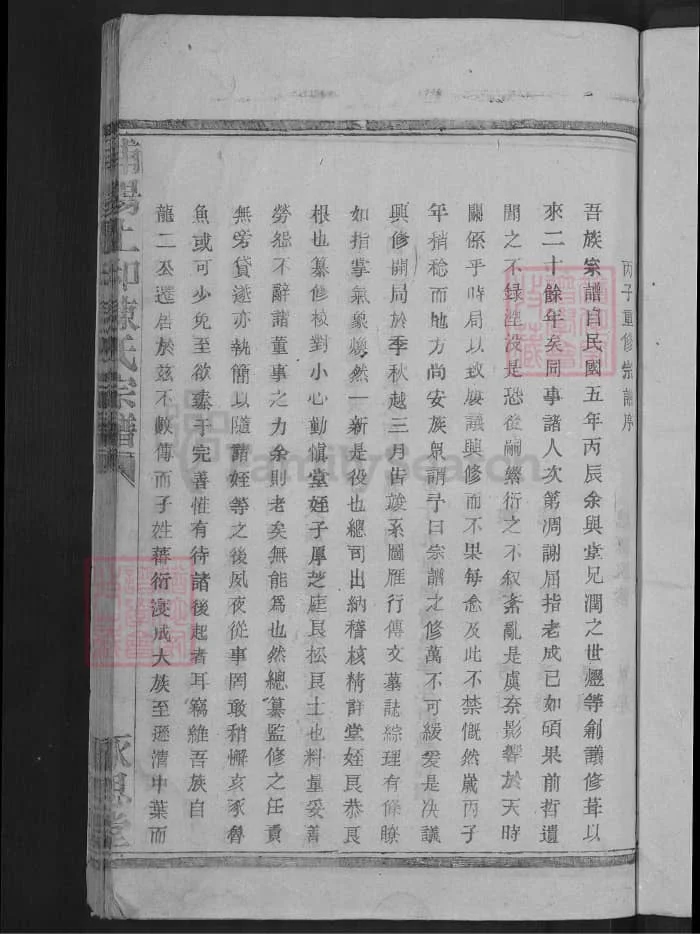 丙子重修宗譜序
吾族宗譜自民國五年丙辰余與堂兄潤之世燈等創議修葺以
來二十餘年矣同事諸人次第凋謝屈指老成已如碩果前哲遺
聞之不録湮没是恐後嗣繁衍之不叙紊亂是虞奈影響於天時
關係乎時局以致屢議興修而不果每念及此不禁慨然歲丙子
年稍稔而地方尚安族衆謂予曰宗譜之修萬不可緩爰是決議
興修開局於季秋越三月告竣系圖雁行傳文墓誌綜理有條瞭
如指掌氣象煥然一新是役也總司出納稽核精詳堂姪良恭良
根也纂修校對小心勤愼堂姪子厚芝庭良松良士也料量妥善
勞怨不辭諸董事之力余則老矣無能爲也然總纂監修之任責
無旁貸遂亦執簡以隨諸姪等之後夙夜從事罔敢稍懈亥豕魯
魚或可少免至欲臻于完善惟有待諸後起者耳竊維吾族自
龍二公遷居於兹不數傳而子姓蕃衍浸成大族至遜清中葉而
氏宗譜
FamilySea.cn